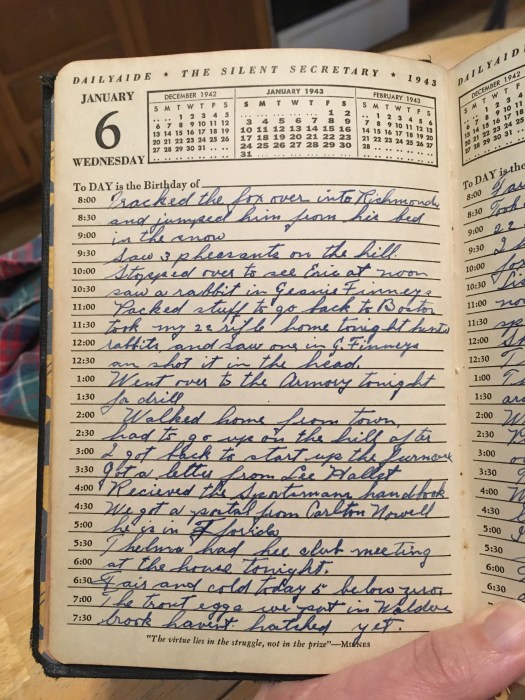 DAILYAIDE ★ THE SILENT SECRETARY ★ 1943
JANUARY
6
WEDNESDAY
DECEMBER 1942
S M T W T F S
. . . . 1 2 3 4 5
6 7 8 9 10 11 12
13 14 15 16 17 18 19
20 21 22 23 24 25 26
27 28 29 30 31 . .
JANUARY 1943
S M T W T F S
. . . . . . . . . . 1 2
3 4 5 6 7 8 9
10 11 12 13 14 15 16
17 18 19 20 21 22 23
24 25 26 27 28 29 30
31 . . . . . . . . . . . .
FEBRUARY 1943
S M T W T F S
. . 1 2 3 4 5 6
7 8 9 10 11 12 13
14 15 16 17 18 19 20
21 22 23 24 25 26 27
28 . . . . . . . . . . . .
To DAY is the Birthday of
8:00 Tracked the fox over into Richmonds
8:30 and jumped him from his bed
9:00 in the snow
9:30 Saw 3 pheasants on the hill.
10:00 Stopped over to see Eric at noon
10:30 saw a rabbit in Geanie Finneys
11:00 Packed stuff to go back to Boston
11:30 took my 22 rifle home tonight hunted
12:00 rabbits, and saw one in G. Finneys
12:30 an shot it in the head.
1:00 Went over to the Armory tonight
1:30 fo drill
2:00 Walked home from town,
2:30 had to go up on the hill after
3:00 I got back to start up the furnace
3:30 Got a letter from Lee Hallet
4:00 Recieved the Sportsmans handbook
4:30 We got a postal from Carlton Nowell
5:00 he is in Florida
5:30 Thelma had hee club meeting
6:00 at the house tonight.
6:30 Fair and cold today 5 below zero
7:00 The trout eggs we put in Walders
7:30 brook havent hatched yet.
"The virtue lies in the struggle, not in the prize"—MILNES
DAILYAIDE
JANUARY
DECEMBER 1942
To DAY is the
8:00
8:30 Took
9:00 22
9:30
10:00
10:30
11:00
11:30
12:00
12:30
1:00
1:30
2:00
2:30
3:00
3:30
4:00
4:30
5:00
5:30
6:00
6:30